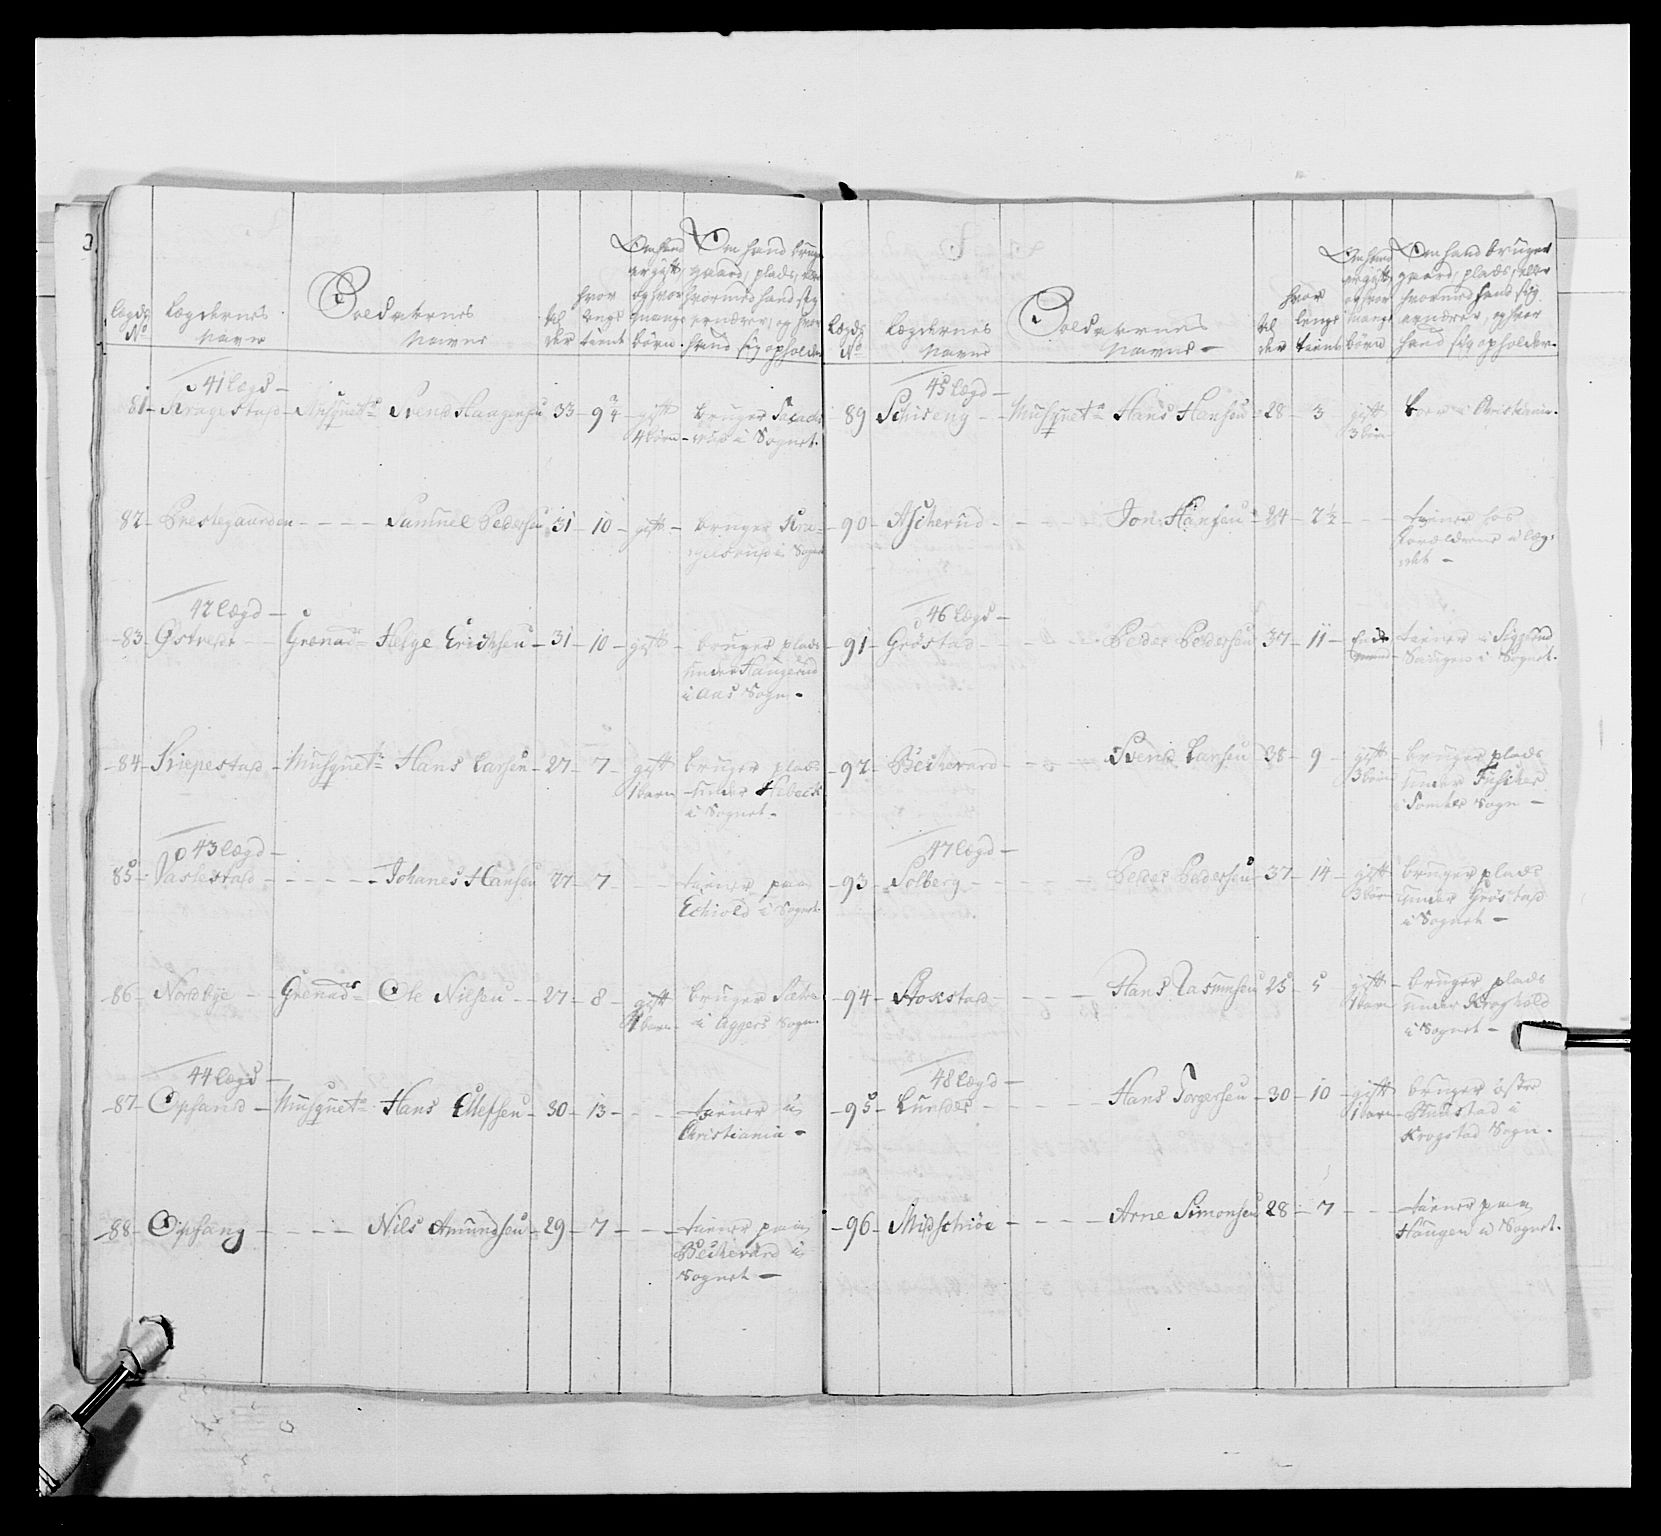 Lægds No
Lægdernes Navne
Soldaternes Navne
Alder
hvor lenge tient
Om hand er gift og hvor mange børn
Om hand bruger gaard, plads, eller hvormed hand sig ernærer, og hvor hand sig opholder
41 Lægd
81 - Kragestad - Musquetr Svend Haagensen 33 - 9 3/4 gift bruger
4 børn - i Sognet.
82 - Prestegaarden - - - - Samuel Pedersen 31 - 10 - gift - bruger
i Sognet
42 Lægd -
83 - Østreser - Grenadr Helge Erichsen - 31 - 10 - gift - bruger plads
under Haugerud
i Aas Sogn -
84 - Kiepestad - Musquetr Hans Larsen - 27 - 7 - gift bruger plads
1 barn under Holbeck
i Sognet -
43 Lægd -
85 - Vaslestad - - - - - Johanes Hansen 27 - 7 - - - tiener paa
Echiold i Sognet
86 - Nordbye - - Grenadr Ole Nilsen - - 27 - 8 - gift bruger Sætre
1 barn - i Aggers Sogn -
44 Lægd -
87 - Opsand - Musquetr Hans Ellefsen - 30 - 13 - - - tiener i
Christiania -
88 - Opsang - - - - Nils Amundsen - 29 - 7 - - - tiener paa
Becheverd i
Sognet -
Lægds No
Lægdernes Navne
Soldaternes Navne -
Alder
hvor lenge tient
Om hand er gift og hvor mange børn
Om hand bruger gaard, plads, eller hvormed hand sig ernærer, og hvor hand sig opholder -
45 Lægd -
89 Schiseng - - Musquetr Hans Hansen - 28 - 3 gift boer i Christiania.
3 børn
90 - Ascherud - - - - Jon Hansen - 24 - 2 1/2 - - - tiener hos
Forældrene i Læg-
det -
46 Lægd -
91 - Grøstad - - - - Peder Pedersen 37 - 11 - Enke tiener i
mand Haugen i Sognet.
92 - Becheverd - - - - Svend Larsen 38 - 9 - gift bruger plads
3 børn under
i Sogn -
47 Lægd -
93 - Solberg - - - - Peder Pedersen - 37 - 14 - gift bruger plads
3 børn under Grøstad
i Sognet -
94 - Stokstad - - - - Hans Rasmusen 25 - 5 gift - bruger plads
1 barn under Kroghold
i Sognet -
48 Lægd -
95 - Lunder - - - - Hans Torgersen - 30 - 10 - gift bruger østre
1 barn - Hudstad i
Krogstad Sogn.
96 - Midschiøe - - - - Arne Simonsen 28 - 7 - - - tiener paa
Haugen i Sognet.